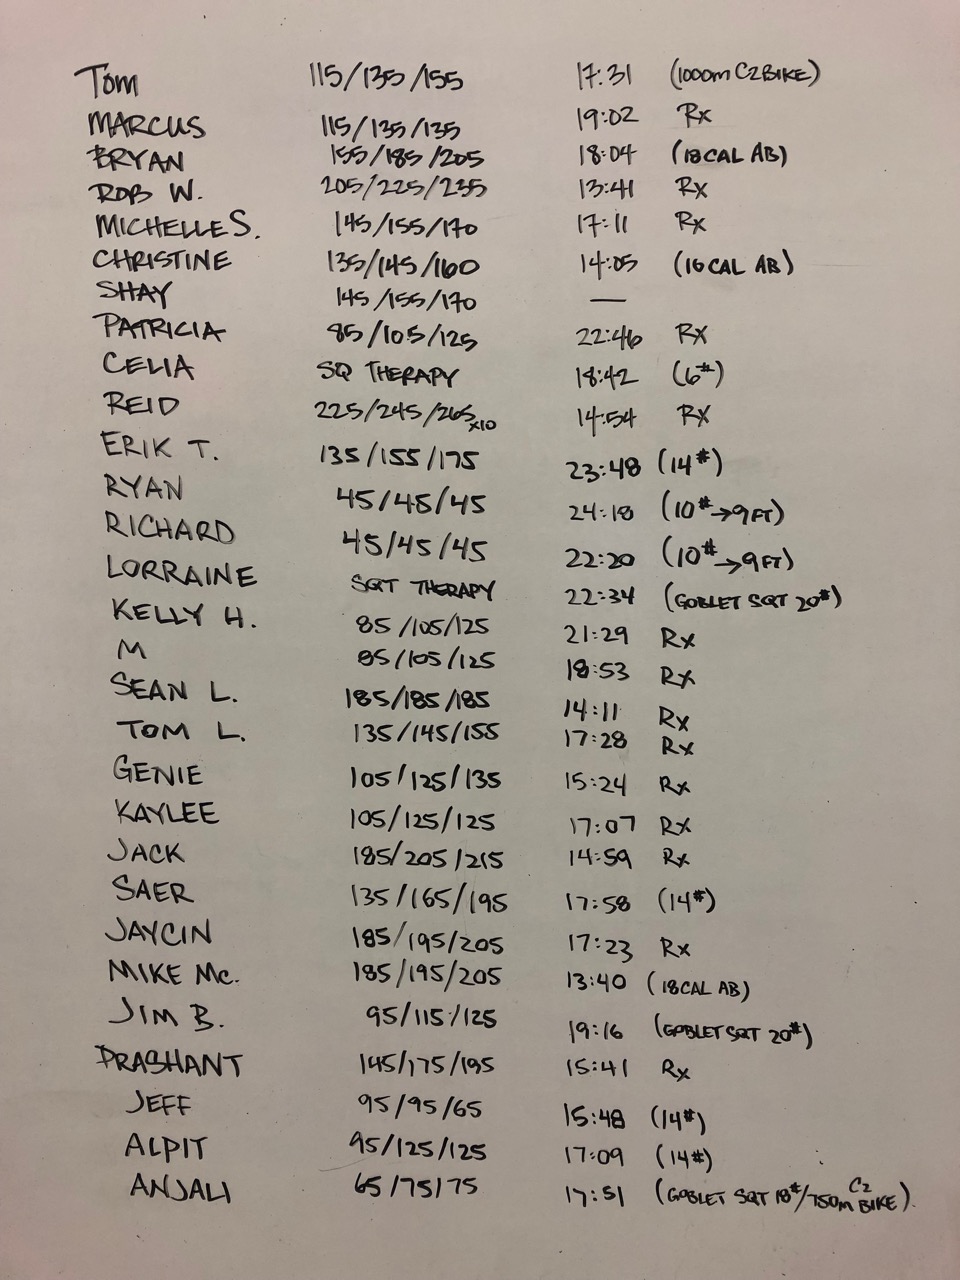 Tom 115/135/155 17:31 (1000m C2BIKE)
MARCUS 115/135/135 19:02 Rx
BRYAN 155/185/205 18:04 (18CAL AB)
ROB W. 205/225/235 13:41 Rx
MICHELLE S. 145/155/170 17:11 Rx
CHRISTINE 135/145/160 14:05 (16CAL AB)
SHAY 145/155/170 —
PATRICIA 85/105/125 22:46 Rx
CELIA SQ THERAPY 18:42 (6#)
REID 225/245/265x10 14:54 Rx
ERIK T. 135/155/175 23:48 (14#)
RYAN 45/45/45 24:18 (10#→9FT)
RICHARD 45/45/45 22:20 (10#→9FT)
LORRAINE SQT THERAPY 22:34 (GOBLET SQT 20#)
KELLY H. 85/105/125 21:29 Rx
M 85/105/125 18:53 Rx
SEAN L. 185/185/185 14:11 Rx
TOM L. 135/145/155 17:28 Rx
GENIE 105/125/135 15:24 Rx
KAYLEE 105/125/125 17:07 Rx
JACK 185/205/215 14:59 Rx
SAER 135/165/195 17:58 (14#)
JAYCIN 185/195/205 17:23 Rx
MIKE Mc. 185/195/205 13:40 (18CAL AB)
JIM B. 95/115/125 19:16 (GOBLET SQT 20#)
PRASHANT 145/175/195 15:41 Rx
JEFF 95/95/65 15:48 (14#)
ALPIT 95/125/125 17:09 (14#)
ANJALI 65/75/75 17:51 (GOBLET SQT 18#/750m C2 BIKE).